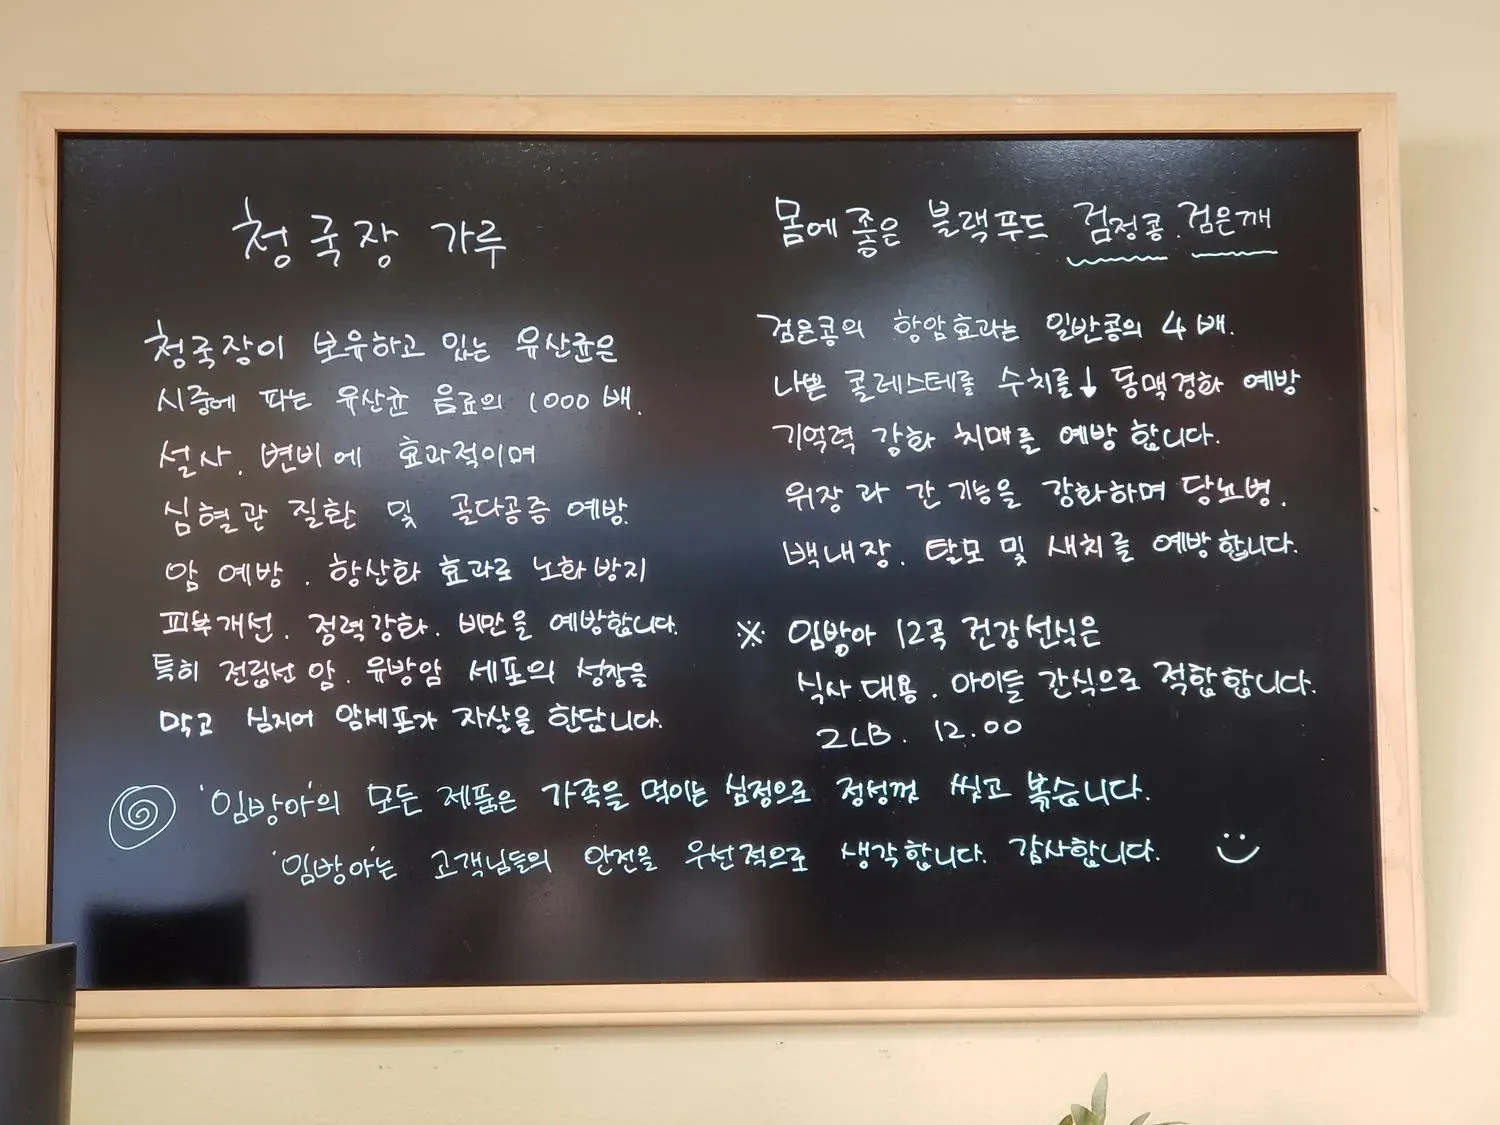 청국장 가루
청국장이 보유하고 있는 유산균은
시중에 파는 유산균 음료의 1000배.
설사. 변비에 효과적이며
심혈관 질환 및 골다공증 예방.
암 예방. 항산화 효과로 노화방지
피부개선. 정력강화. 비만을 예방합니다.
특히 전립선 암. 유방암 세포의 성장을
막고 심지어 암세포가 자살을 한답니다.
몸에 좋은 블랙푸드 검정콩. 검은깨
검은콩의 항암효과는 일반콩의 4배.
나쁜 콜레스테롤 수치를↓ 동맥경화 예방
기억력 강화 치매를 예방합니다.
위장과 간 기능을 강화하며 당뇨병.
백내장. 탈모 및 새치를 예방합니다.
※ 임방아 12곡 건강선식은
식사 대용. 아이들 간식으로 적합합니다.
2LB. 12.00
'임방아'의 모든 제품은 가족을 먹이는 심정으로 정성껏 씻고 볶습니다.
'임방아'는 고객님들의 안전을 우선적으로 생각합니다. 감사합니다.